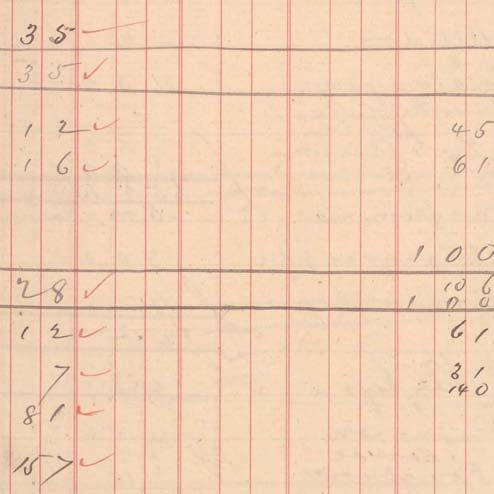 35
35
12 45
16 61
100
28 106
100
12 61
7 31
140
81
157